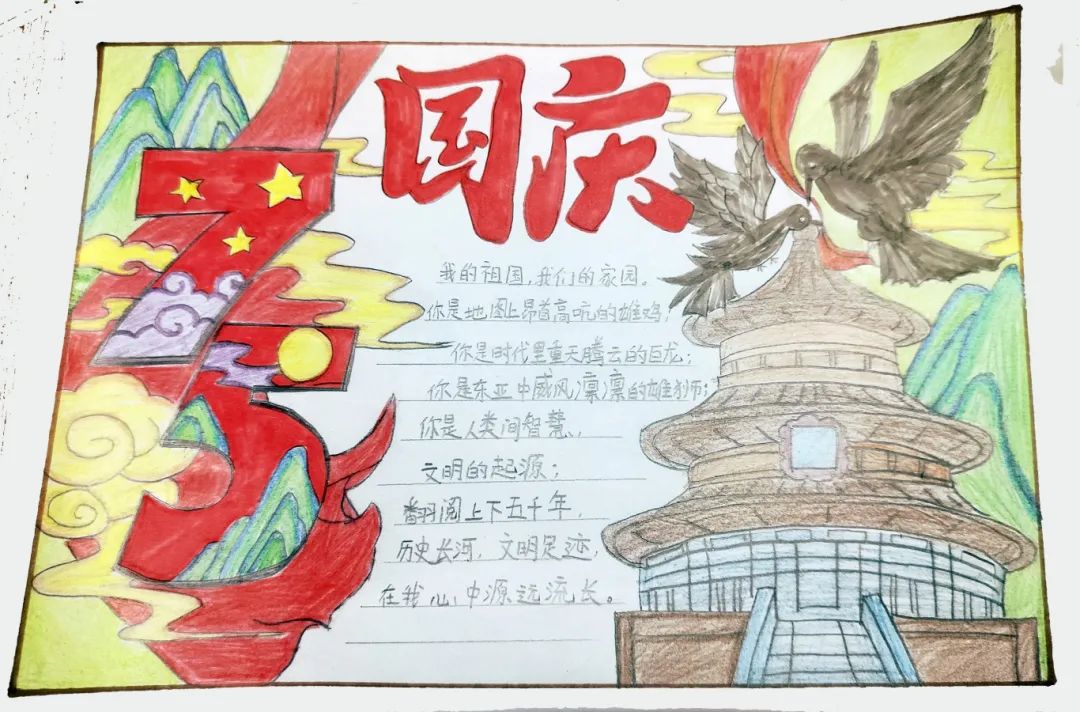 国庆
75
我的祖国,我们的家园。
你是地图上昂首高吭的雄鸡;
你是时代里重天腾云的巨龙;
你是东亚中威风凛凛的雄狮;
你是人类间智慧、
文明的起源;
翻阅上下五千年,
历史长河,文明足迹,
在我心中源远流长。